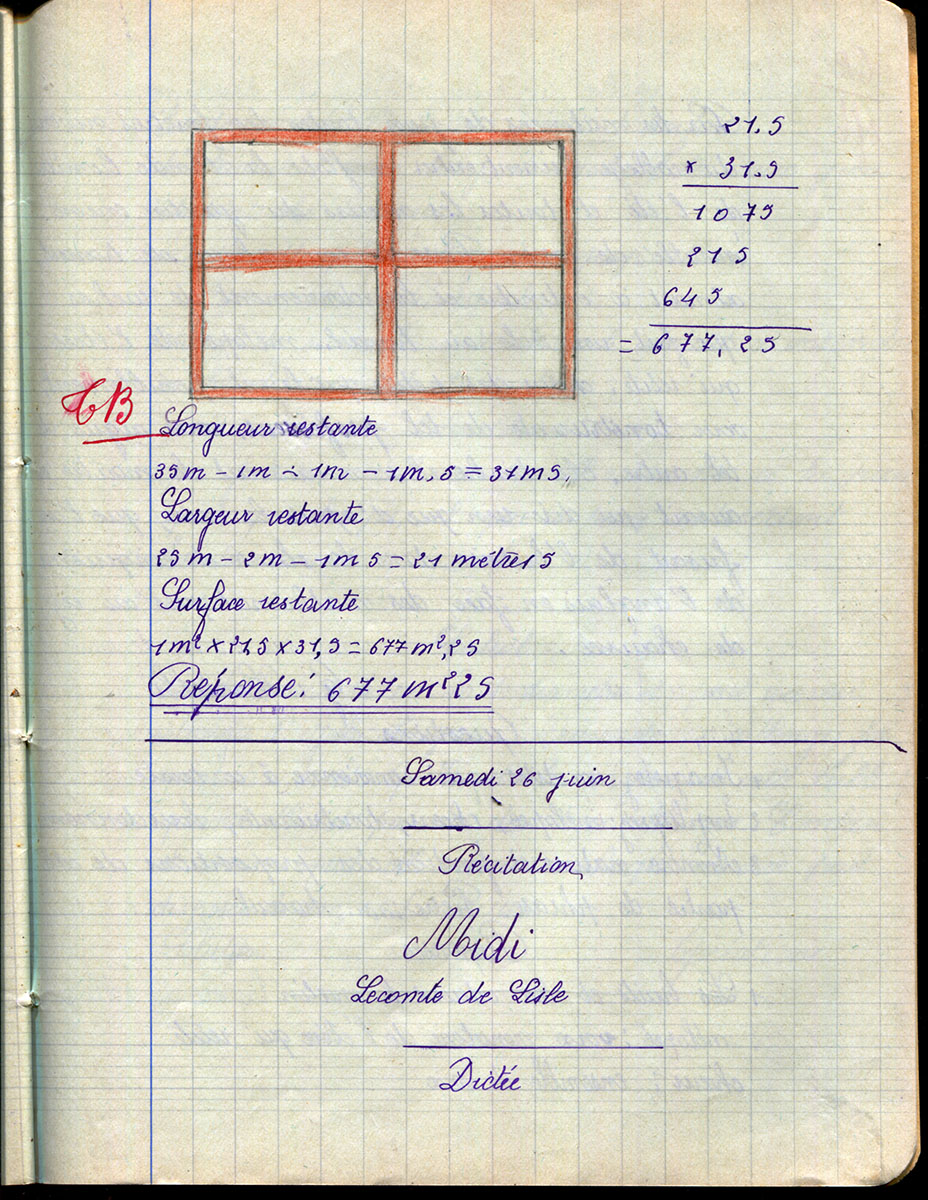 21.5
× 31.5
1075
215
645
= 677,25
TB
Longueur restante
35m - 1m - 1m - 1m,5 = 31m5.
Largeur restante
25m - 2m - 1m5 = 21 mètres 5
Surface restante
1m² × 21,5 × 31,5 = 677m²,25
Réponse: 677m²25
Samedi 26 juin
Récitation
Midi
Lecomte de Lisle
Dictée